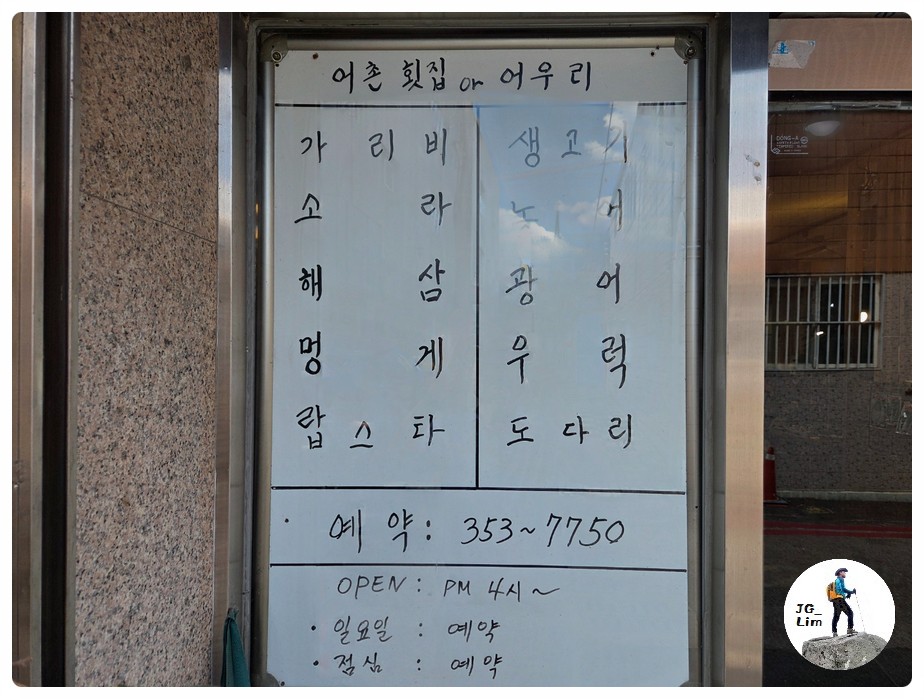 어촌 횟집 or 어우리
가리비 생고기
소라 농어
해삼 광어
멍게 우럭
랍스타 도다리
예약: 353~7750
OPEN: PM 4시~
· 일요일 : 예약
· 점심 : 예약
DONG-A
JG_
Lim